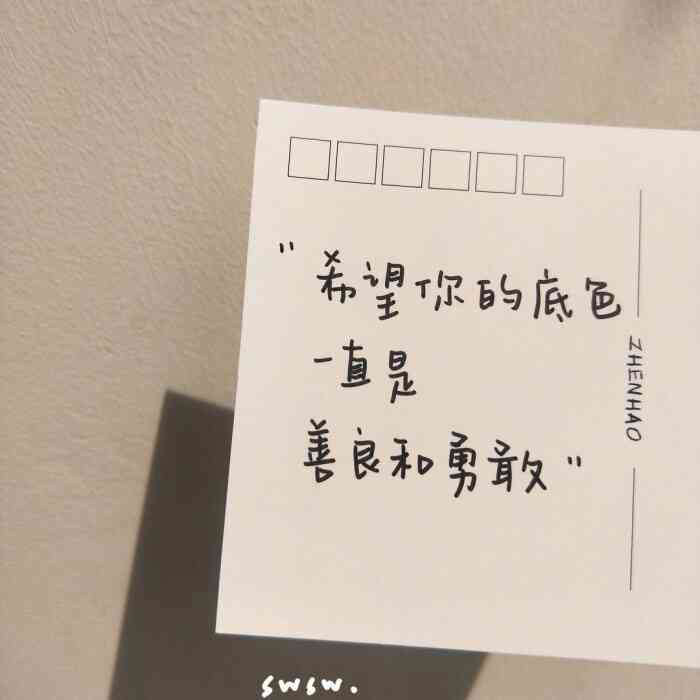 "希望你的底色
一直是
善良和勇敢"
ZHENHAO
swsw.